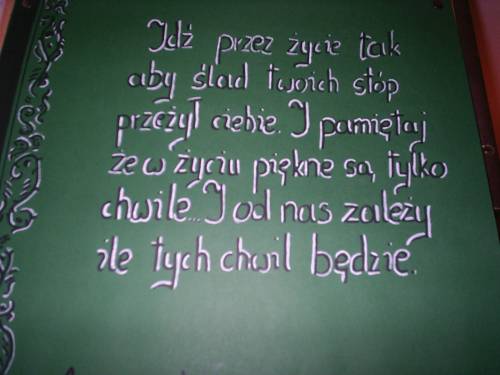 Idź przez życie tak
aby ślad twoich stóp
przeżył ciebie. I pamiętaj
że w życiu piękne są tylko
chwile... I od nas zależy
ile tych chwil będzie.